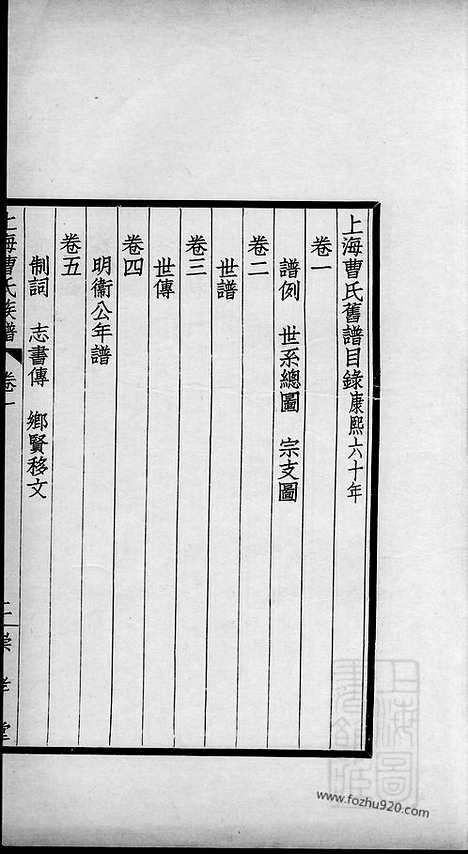 上海曹氏舊譜目錄康熙六十年
卷一
譜例　世系總圖　宗支圖
卷二
世譜
卷三
世傳
卷四
明衞公年譜
卷五
制詞　志書傳　鄉賢移文
上海曹氏族譜　卷一
崇孝堂
上海圖
www.fozhu920.com